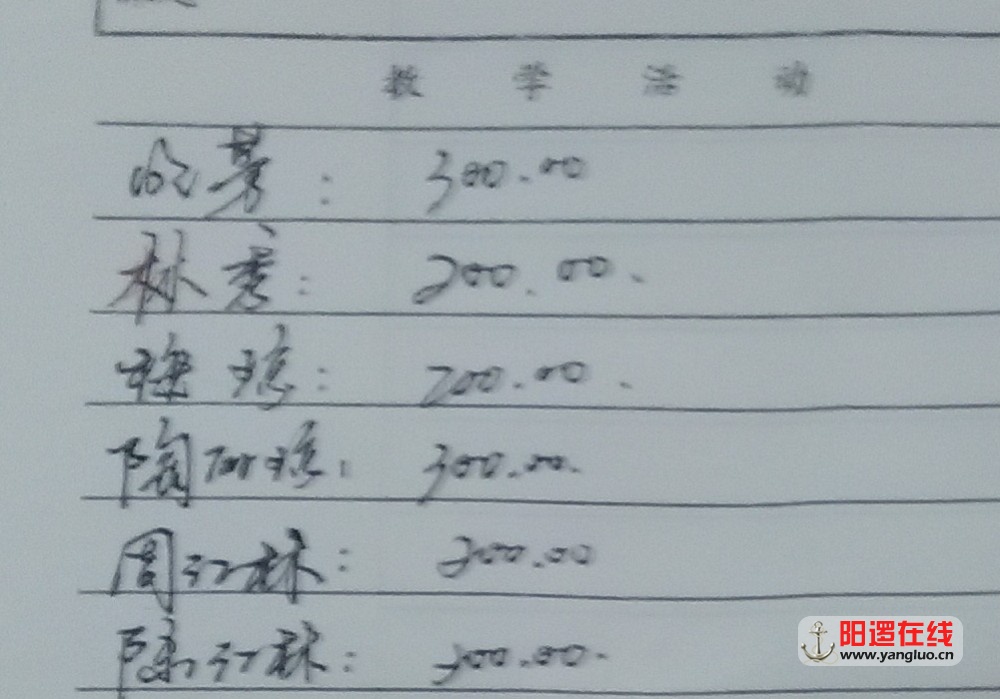 教 学 活 动
300.00
林秀： 200.00.
琼： 200.00.
陶丽琼： 300.00.
周江林： 300.00
陈江林： 300.00.
阳逻在线
www.yangluo.cn